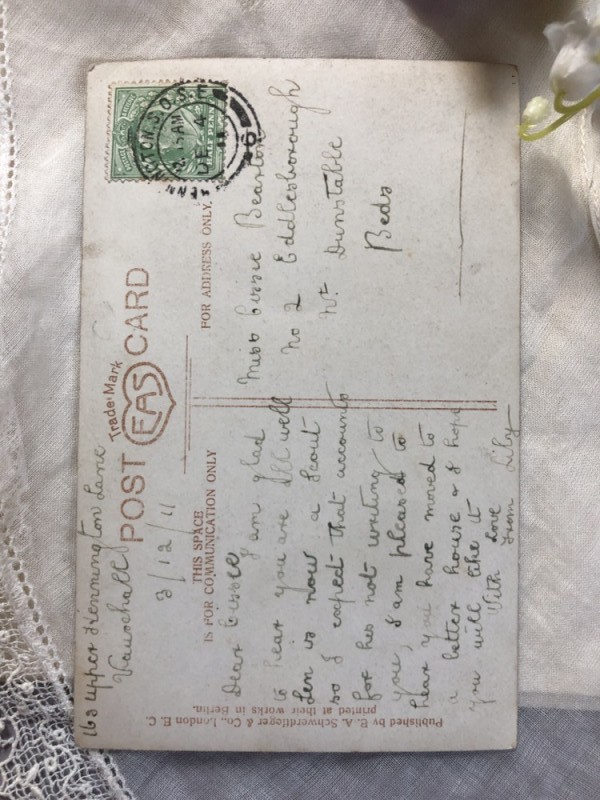 Upper Kennington Lane
Vauxhall
3/12/11
POST CARD
Trade Mark
EAS
THIS SPACE
IS FOR COMMUNICATION ONLY
FOR ADDRESS ONLY.
Dear Cissie
I am glad
to hear you are still well
Len is now a Scout
so I expect that accounts
for his not writing to
you, I am pleased to
hear you have moved to
a better house & I hope
you will like it
With Love
From Lily
Miss Cissie
No 2 Eddlesborough
Nr Dunstable
Beds
HALF PENNY
KENNINGTON S.O. S.E
DE 4
11
Published by E. A. Schwerdtfeger & Co., London E. C.
printed at their works in Berlin.